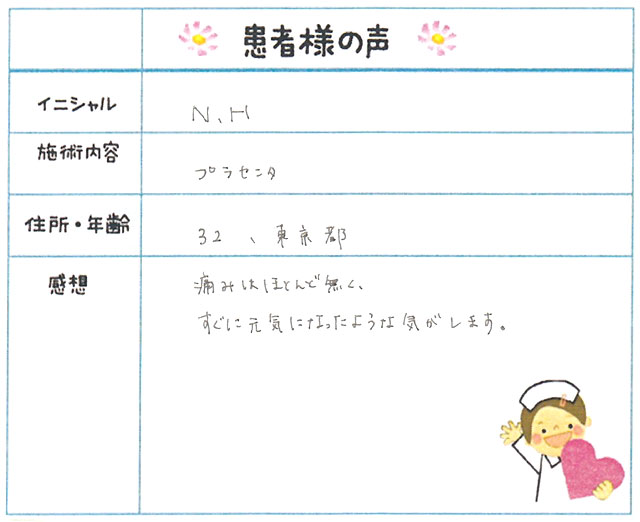 患者様の声
イニシャル
N、H
施術内容
プラセンタ
住所・年齢
32、東京都
感想
痛みはほとんど無く、
すぐに元気になったような気がします。